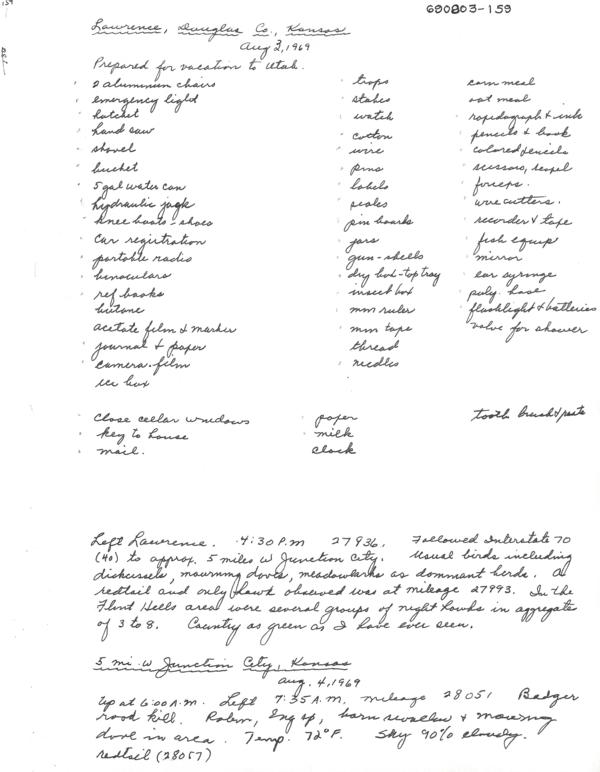 690803-159
Lawrence, Douglas Co., Kansas
Aug 3, 1969
Prepared for vacation to Utah.
2 aluminum chairs
emergency light
hatchet
hand saw
shovel
bucket
5 gal water can
hydraulic jack
knee boots - shoes
car registration
portable radio
binoculars
ref books
butane
acetate film & marker
journal & paper
camera - film
ice box
traps
stakes
watch
cotton
wire
pins
labels
scales
pin boards
jars
gun - shells
dry box - top tray
insect box
mm ruler
mm tape
thread
needles
corn meal
oat meal
rapidograph & ink
pencils & book
colored pencils
scissors, scapel
forceps.
wire cutters.
recorder & tape
fish equip
mirror
ear syringe
poly. hose
flashlight & batteries
valve for shower
close cellar windows
key to house
mail.
paper
milk
clock
tooth brush & paste
Left Lawrence. 4:30 P.M 27936. Followed Interstate 70
(40) to approx. 5 miles W Junction City. Usual birds including
dickcissels, mourning doves, meadowlarks as dominant birds. A
redtail and only hawk observed was at mileage 27993. In the
Flint Hills area were several groups of night hawks in aggregate
of 3 to 8. Country as green as I have ever seen.
5 mi. W Junction City, Kansas
Aug. 4, 1969
Up at 6:00 A.M. Left 7:35 A.M. mileage 28051 Badger
road kill. Robin, Eng sp, barn swallow & mourning
dove in area. Temp. 72°F. Sky 90% cloudy.
redtail (28057)